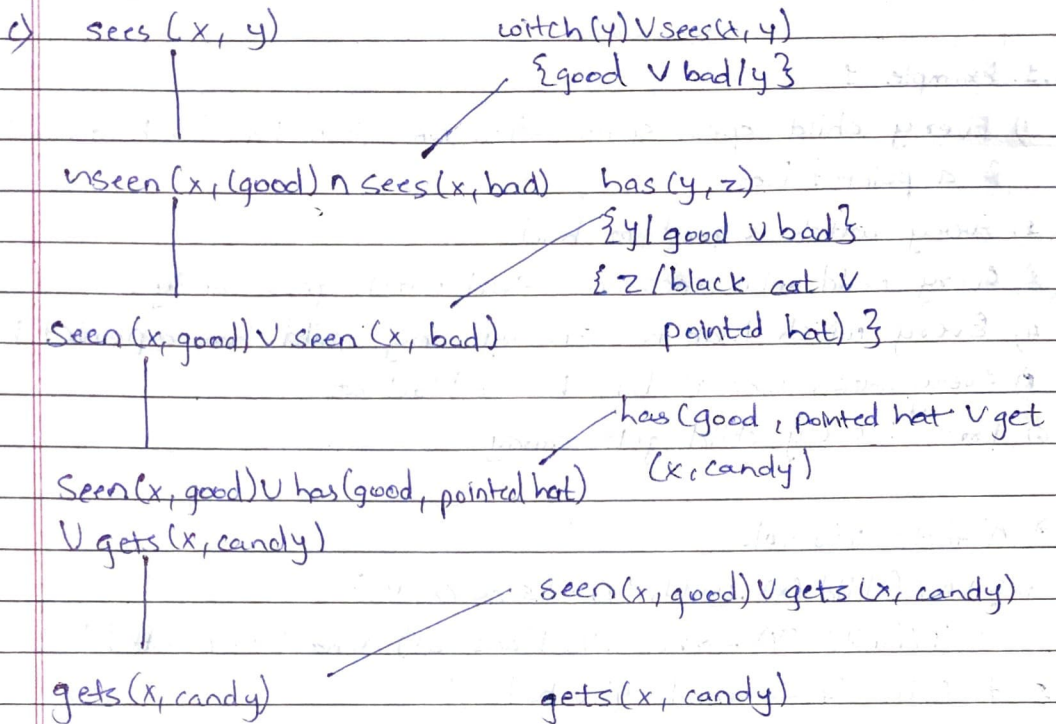 c) sees (x, y) witch (y) V sees(x, y)
{good V bad/y}
nseen (x, (good) ∩ sees (x, bad) has (y, z)
{y/ good v bad}
{ z /black cat V
Seen (x, good) V seen (x, bad) pointed hat) }
has (good , pointed hat V get
(x, candy)
Seen (x, good) U has (good, pointed hat)
U gets (x, candy)
seen (x, good) V gets (x, candy)
gets (x, candy) gets (x, candy)